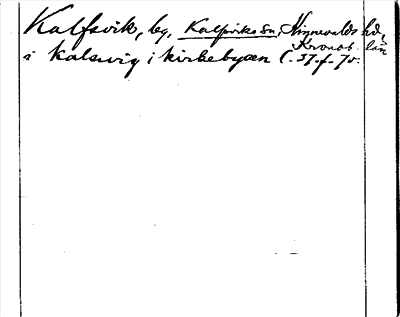 Kalfsvik, by, Kalfsviks sn, Kinnevalds hd,
Kronob. län
i Kalswig i kirkebyæn C. 37. f. 7 v.